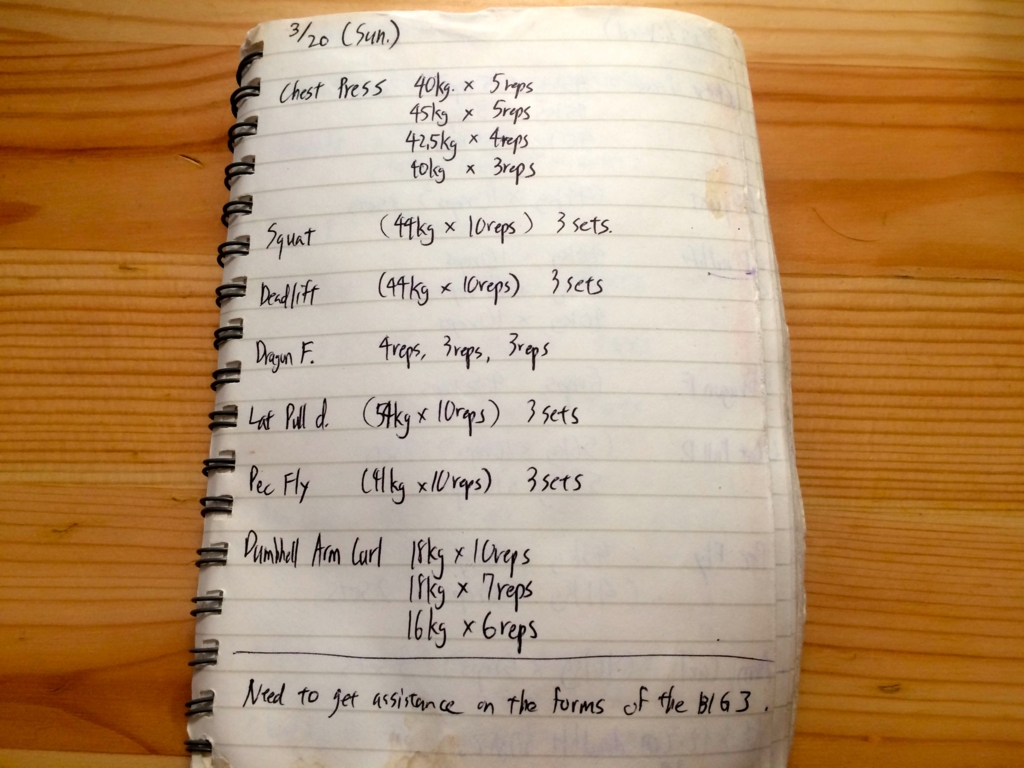 3/20 (Sun.)
Chest Press 40kg. × 5reps
45kg × 5reps
42.5kg × 4reps
40kg × 3reps
Squat (44kg × 10reps) 3 sets.
Deadlift (44kg × 10reps) 3 sets
Dragon F. 4reps, 3reps, 3reps
Lat Pull d. (54kg × 10reps) 3 sets
Pec Fly (41kg × 10reps) 3 sets
Dumbbell Arm Curl 18kg × 10reps
18kg × 7reps
16kg × 6reps
Need to get assistance on the forms of the BIG 3.